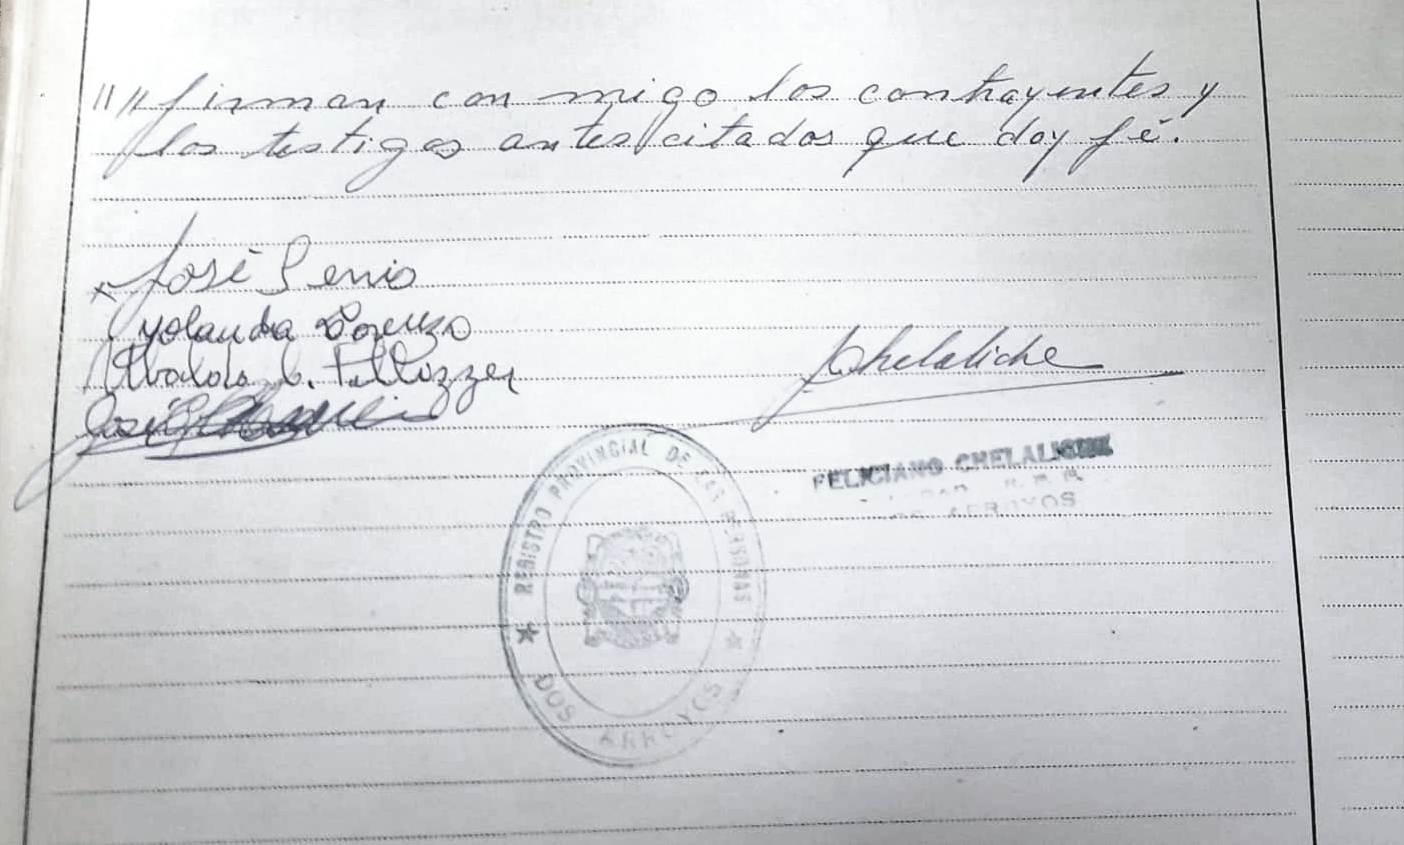 "" firman con migo los contrayentes y
los testigos antes citados que doy fé.
José
Yolanda Lorenzo
José
Chelaliche
FELICIANO CHELALICHE
ARROYOS
REGISTRO PROVINCIAL DE LAS PERSONAS
DOS ARROYOS